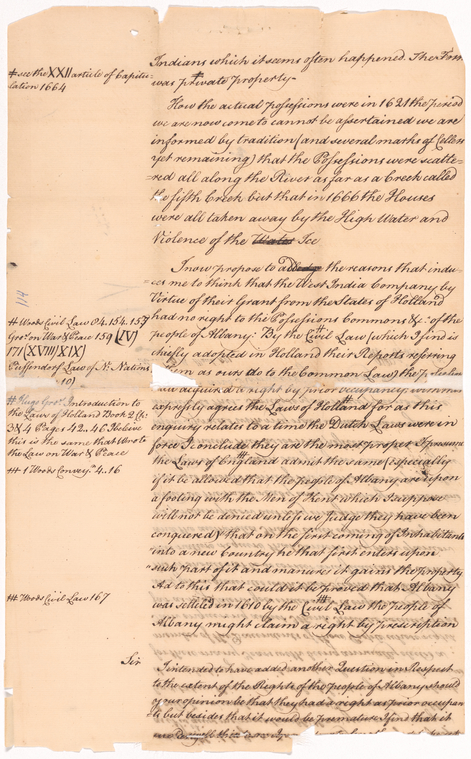 Indians which it seems often happened. The Fort
was private property
How the actual possessions were in 1621 the period
we are now come to cannot be assertained we are
informed by tradition (and several marks of Cellers
yet remaining) that the Possessions were scatte=
=red all along the River as far as a Creek called
the fifth Creek but that in 1666 the Houses
were all taken away by the High Water and
Violence of the Water Ice
I now propose to the reasons that indu=
=ces me to think that the West India Company by
Virtue of their Grant from the States of Holland
had no right to the Possessions Commons &c. of the
people of Albany. By the Civil Law (which I find is
chiefly adopted in Holland their Reports referring
them as our do to the Common Law) the
acquired a right by prior occupancy
expressly agrees the Laws of Holland for as this
enquiry relates to a time the Dutch Laws were in
force I conclude they are the most proper I presume
the Laws of England admit the same (especially
if it be allowed that the people of Albany are upon
a footing with the Men of Kent which I suppose
will not be denied unless we judge they have been
conquered & that on the first coming of Inhabitants
into a new Country he that first enters upon
such part of it and manures it gains the property
Ad to this that could it be proved that Albany
was settled in 1610 by the Civil Law the people of
Albany might claim a right by prescription
Sir
I intended to have added another Question in Respect
to the extent of the Rights of the people of Albany should
your opinion be that they had a right as prior occupan
ts but besides that it would be premature I find that it
# see the XXII article of Capitu=
lation 1664
114
# Woods Civil Law 84. 154. 157
Grot. on War & Peace 159 (IV)
171 (XVIII) XIX)
Puffendorf Law of Nr. Nations
# Hugo Grot. Introduction to
the Laws of Holland Book 2 (C:
3 & 4 Pages 42. 46 I believe
this is the same that wrote
the Law on War & Peace
## 1 Woods Convey. 4. 16
## Woods Civil Law 167